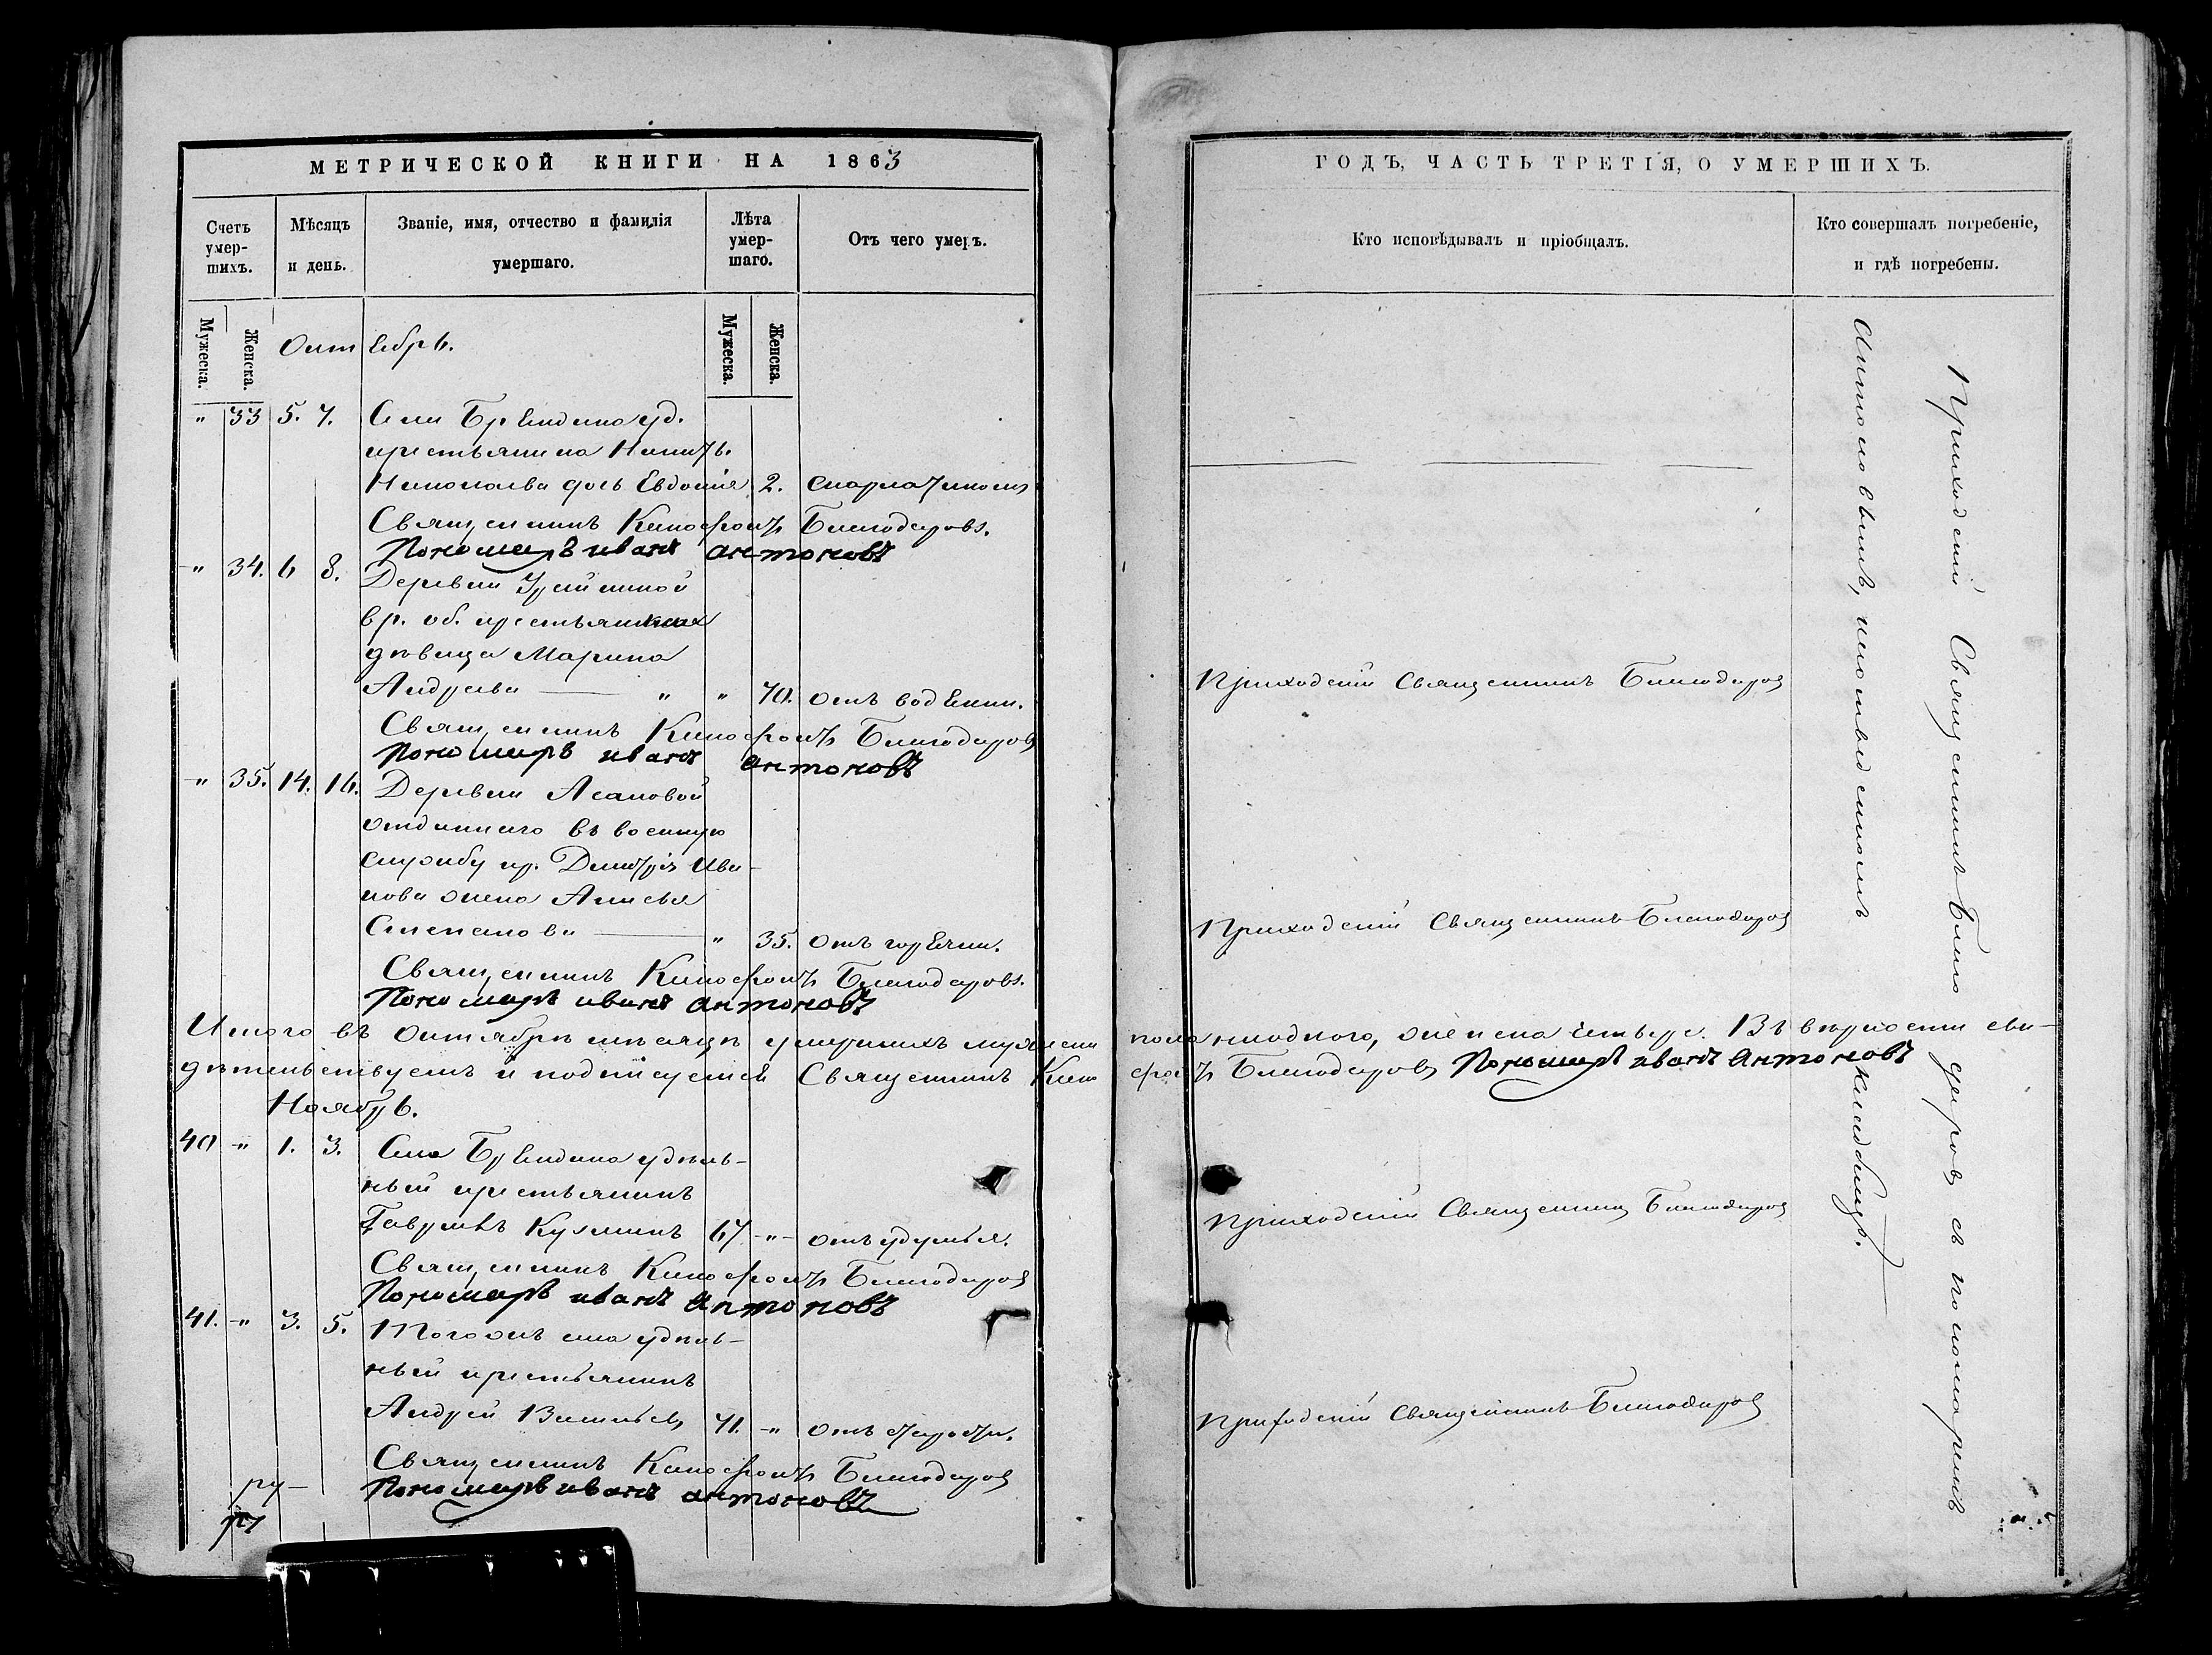 МЕТРИЧЕСКОЙ КНИГИ НА 1863
Счетъ умер-шихъ.
Мѣсяцъ и день.
Званіе, имя, отчество и фамилія умершаго.
Лѣта умер-шаго.
Отъ чего умеръ.
Мужеска. Женска.
Мужеска. Женска.
Октябрь.
" 33 5. 7. Села уд.
крестьянина Никиты
Николаева дочь Евдокія 2. скарлатиною
Священникъ Ксенофонтъ Благодаровъ.
Пономарь иванъ антоновъ
" 34. 6 8. Деревни
вр. об. крестьянская
дѣвица Марина
Андреева " " 70. отъ водянки.
Священникъ Ксенофонтъ Благодаровъ
Пономарь иванъ антоновъ
" 35. 14. 16. Деревни Асановой
отданнаго въ военную
службу кр. Димитрія Ива-
нова жена Анисья
Степанова " 35. отъ горячки.
Священникъ Ксенофонтъ Благодаровъ.
Пономарь иванъ антоновъ
Итого въ Октябрѣ мѣсяцѣ умершихъ мужеска пола ни одного, женска четыре. Въ вѣрности сви-
дѣтельствуемъ и подписуемся Священникъ Ксенофонтъ Благодаровъ Пономарь иванъ Антоновъ
Ноябрь.
40 " 1. 3. Села удѣль-
ный крестьянинъ
Гавріилъ Кузминъ 67 " отъ удушья.
Священникъ Ксенофонтъ Благодаровъ
Пономарь иванъ антоновъ
41. " 3. 5. Того же села удѣль-
ный крестьянинъ
Андрей Васильевъ 71. " отъ старости.
Священникъ Ксенофонтъ Благодаровъ
Пономарь иванъ антоновъ
ру-
ГОДЪ, ЧАСТЬ ТРЕТІЯ, О УМЕРШИХЪ.
Кто исповѣдывалъ и пріобщалъ.
Кто совершалъ погребеніе, и гдѣ погребены.
Приходскій Священникъ Благодаровъ
Приходскій Священникъ Благодаровъ
Приходскій Священникъ Благодаровъ
Приходскій Священникъ Благодаровъ
Приходскій Священникъ Благодаровъ съ пономаремъ
Антоновымъ, на приходскомъ кладбищѣ.